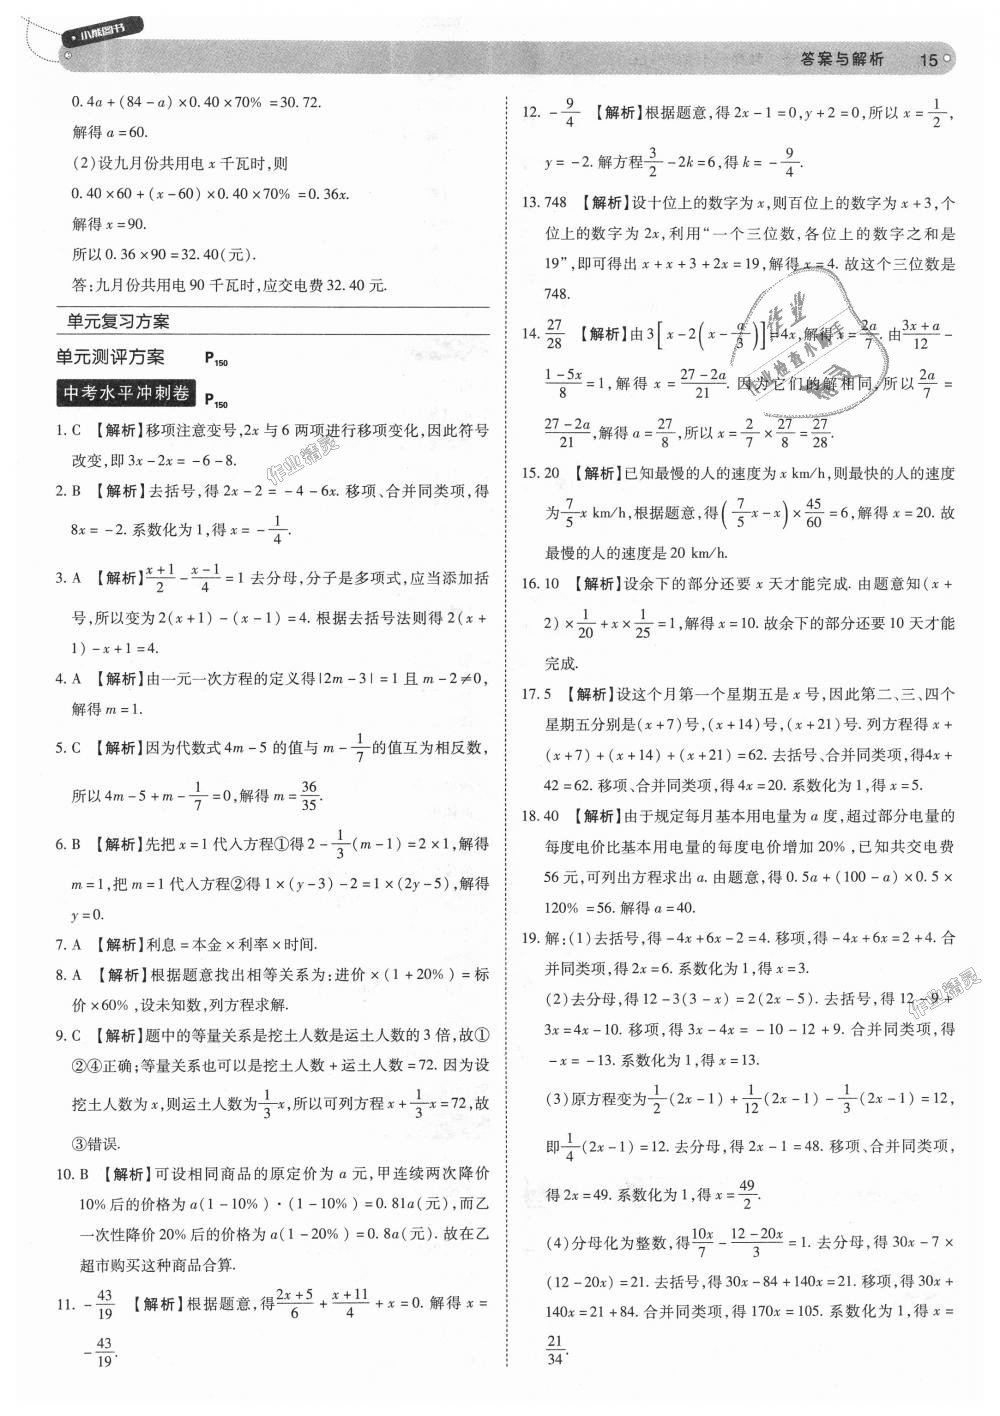 小熊图书
答案与解析 15
0.4a+(84-a)×0.40×70%=30.72.
解得a=60.
(2)设九月份共用电x千瓦时,则
0.40×60+(x-60)×0.40×70%=0.36x.
解得x=90.
所以0.36×90=32.40(元).
答:九月份共用电90千瓦时,应交电费32.40元.
单元复习方案
单元测评方案 P150
中考水平冲刺卷 P150
1. C 【解析】移项注意变号,2x与6两项进行移项变化,因此符号
改变,即3x-2x=-6-8.
2. B 【解析】去括号,得2x-2=-4-6x.移项、合并同类项,得
8x=-2.系数化为1,得x=-1/4.
3. A 【解析】(x+1)/2-(x-1)/4=1去分母,分子是多项式,应当添加括
号,所以变为2(x+1)-(x-1)=4.根据去括号法则得2(x+
1)-x+1=4.
4. A 【解析】由一元一次方程的定义得|2m-3|=1且m-2≠0,
解得m=1.
5. C 【解析】因为代数式4m-5的值与m-1/7的值互为相反数,
所以4m-5+m-1/7=0,解得m=36/35.
6. B 【解析】先把x=1代入方程①得2-1/3(m-1)=2×1,解得
m=1,把m=1代入方程②得1×(y-3)-2=1×(2y-5),解得
y=0.
7. A 【解析】利息=本金×利率×时间.
8. A 【解析】根据题意找出相等关系为:进价×(1+20%)=标
价×60%,设未知数,列方程求解.
9. C 【解析】题中的等量关系是挖土人数是运土人数的3倍,故①
②④正确;等量关系也可以是挖土人数+运土人数=72.因为设
挖土人数为x,则运土人数为1/3x,所以可列方程x+1/3x=72,故
③错误.
10. B 【解析】可设相同商品的原定价为a元,甲连续两次降价
10%后的价格为a(1-10%)·(1-10%)=0.81a(元),而乙
一次性降价20%后的价格为a(1-20%)=0.8a(元).故在乙
超市购买这种商品合算.
11. -43/19 【解析】根据题意,得(2x+5)/6+(x+11)/4+x=0.解得x=
-43/19.
12. -9/4 【解析】根据题意,得2x-1=0,y+2=0,所以x=1/2,
y=-2.解方程3/2-2k=6,得k=-9/4.
13. 748 【解析】设十位上的数字为x,则百位上的数字为x+3,个
位上的数字为2x,利用“一个三位数,各位上的数字之和是
19”,即可得出x+x+3+2x=19,解得x=4.故这个三位数是
748.
14. 27/28 【解析】由3[x-2(x-a/3)]=4x,解得x=2a/7.由(3x+a)/12-
(1-5x)/8=1,解得x=(27-2a)/21.因为它们的解相同,所以2a/7=
(27-2a)/21,解得a=27/8,所以x=2/7×27/8=27/28.
15. 20 【解析】已知最慢的人的速度为x km/h,则最快的人的速度
为7/5x km/h,根据题意,得(7/5x-x)×45/60=6,解得x=20.故
最慢的人的速度是20 km/h.
16. 10 【解析】设余下的部分还要x天才能完成.由题意知(x+
2)×1/20+x×1/25=1,解得x=10.故余下的部分还要10天才能
完成.
17. 5 【解析】设这个月第一个星期五是x号,因此第二、三、四个
星期五分别是(x+7)号,(x+14)号,(x+21)号.列方程得x+
(x+7)+(x+14)+(x+21)=62.去括号、合并同类项,得4x+
42=62.移项、合并同类项,得4x=20.系数化为1,得x=5.
18. 40 【解析】由于规定每月基本用电量为a度,超过部分电量的
每度电价比基本用电量的每度电价增加20%,已知共交电费
56元,可列出方程求出a.由题意,得0.5a+(100-a)×0.5×
120%=56.解得a=40.
19. 解:(1)去括号,得-4x+6x-2=4.移项,得-4x+6x=2+4.合
并同类项,得2x=6.系数化为1,得x=3.
(2)去分母,得12-3(3-x)=2(2x-5).去括号,得12-9+
3x=4x-10.移项,得3x-4x=-10-12+9.合并同类项,得
-x=-13.系数化为1,得x=13.
(3)原方程变为1/2(2x-1)+1/12(2x-1)-1/3(2x-1)=12,
即1/4(2x-1)=12.去分母,得2x-1=48.移项、合并同类项,
得2x=49.系数化为1,得x=49/2.
(4)分母化为整数,得10x/7-(12-20x)/3=1.去分母,得30x-7×
(12-20x)=21.去括号,得30x-84+140x=21.移项,得30x+
140x=21+84.合并同类项,得170x=105.系数化为1,得x=
21/34.
作业精灵
作业
作业检查小帮手
作业精灵